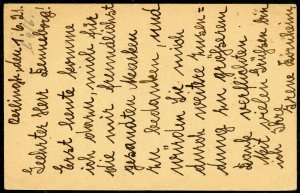 Esslingen, den 1.6.21.
Geehrter Herr Henneberg!
Erst heute komme
ich dazu, mich für
die mir freundlichst
gesandten Marken
zu bedanken, und
würden Sie mich
durch weitere Zusen=
dung zu größerem
Dank verpflichten
Mit vielen Grüßen bin
ich Ihre
Irene